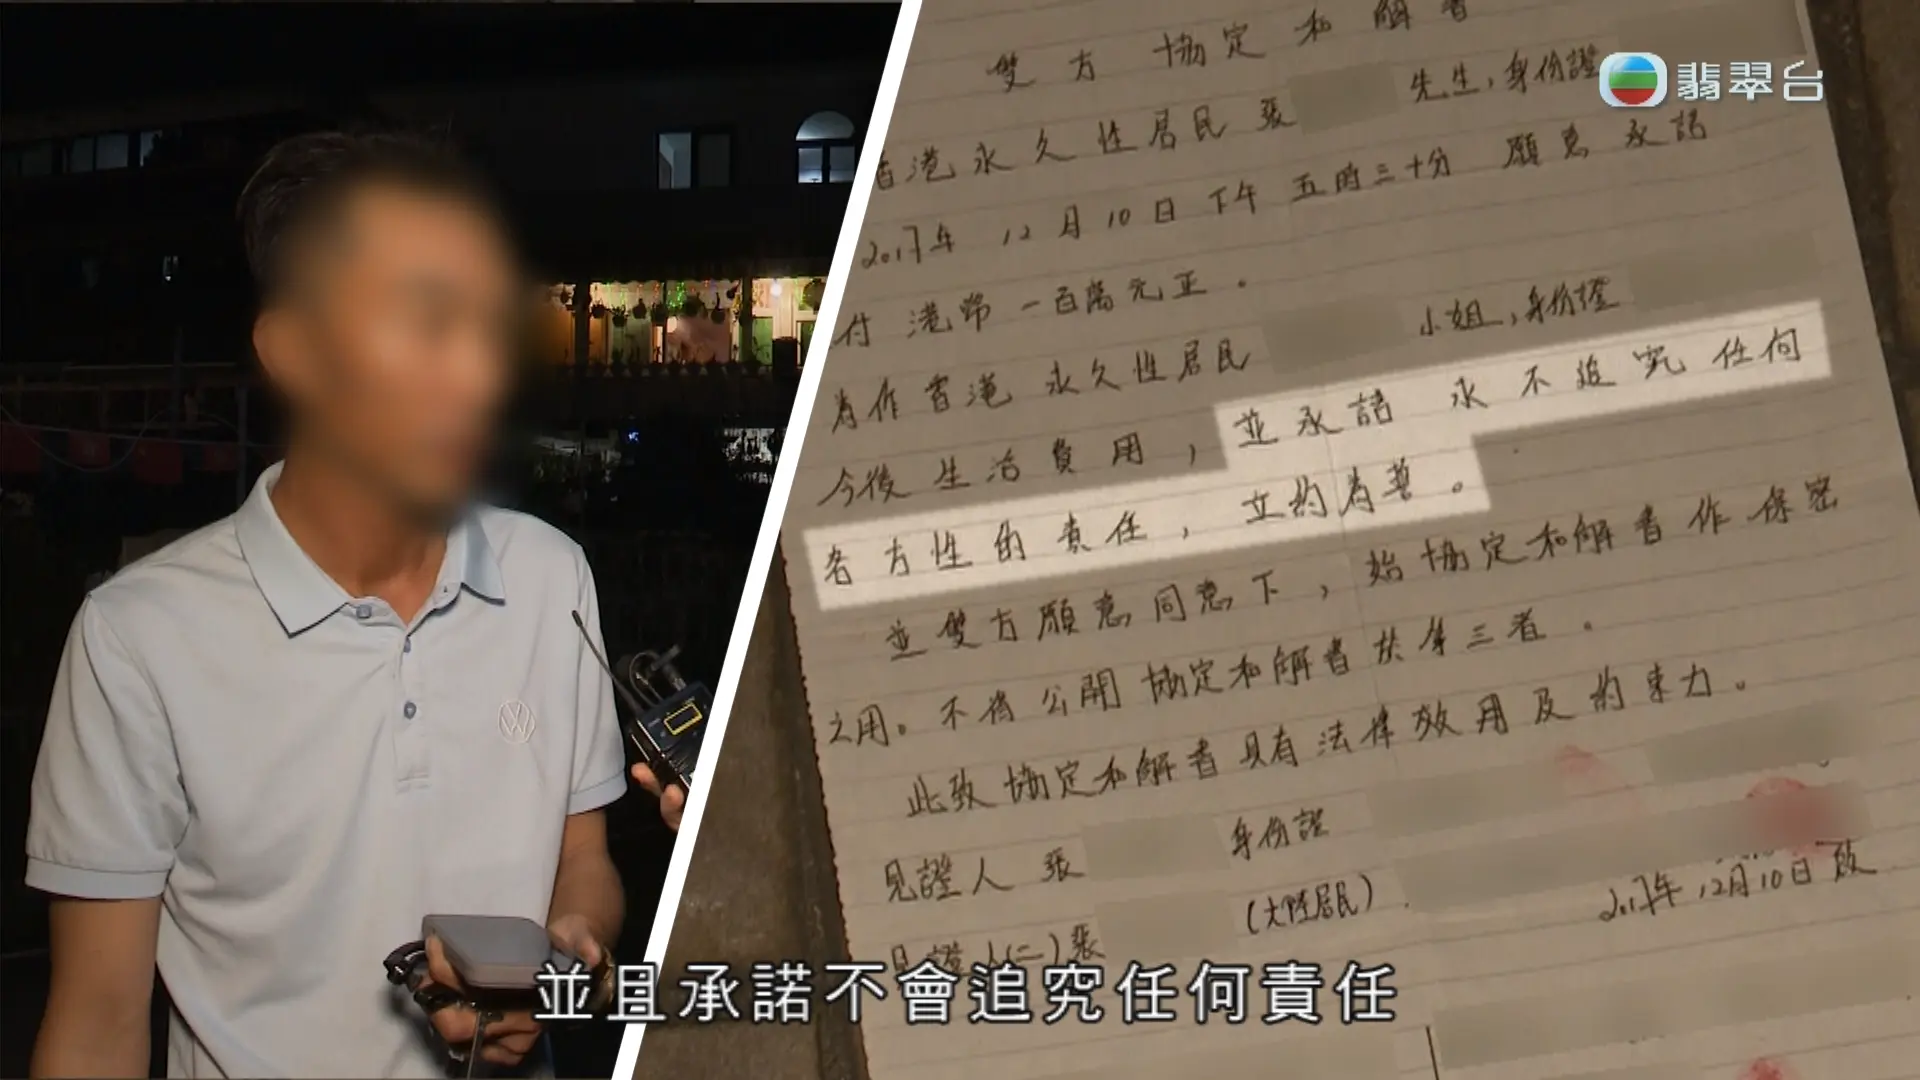 翡翠台
雙方協定和解書
香港永久性居民 張 先生，身份證
2017年 12月10日下午 五時三十分 願意承諾
付 港幣一百萬元正。
為作香港永久性居民 小姐，身份證
今後生活費用，並承諾 永不追究任何
各方性的責任，立約為善。
並雙方願意同意下，始協定和解書作保密
之用。不得公開協定和解書於第三者。
此致協定和解書具有法律效用及約束力。
見證人 張 身份證
(大陸居民)
見證人(二)張
2017年12月10日啟
並且承諾不會追究任何責任